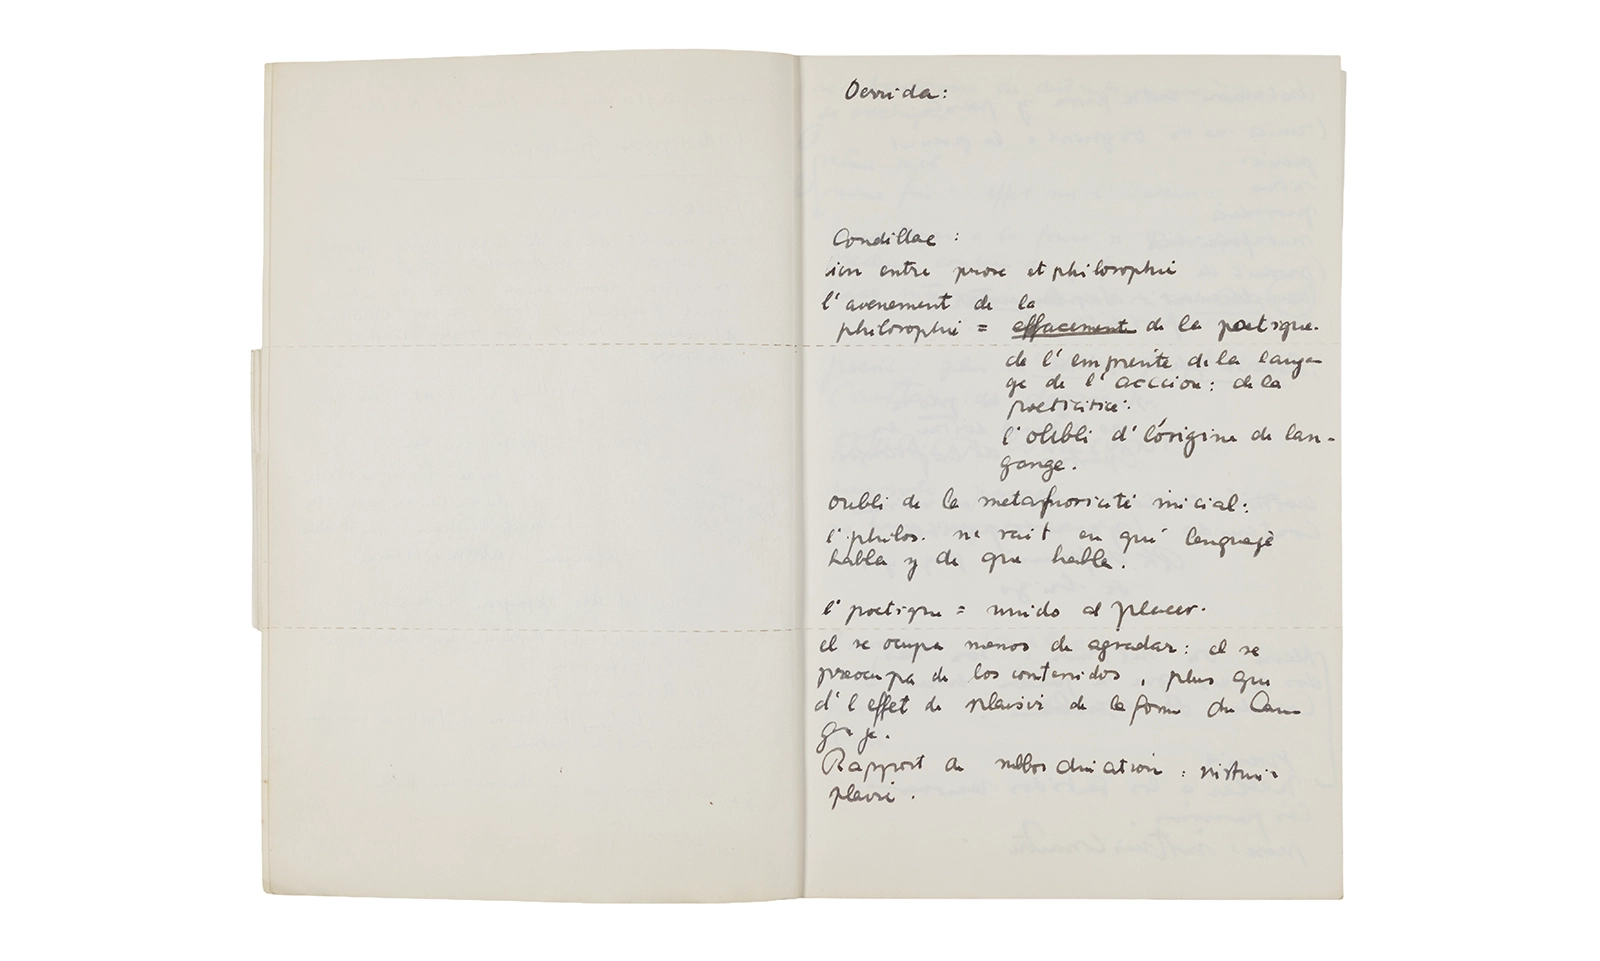 Derrida:
Condillac :
lien entre prose et philosophie
l'avenement de la
philosophie = effacement de la poetique.
de l'empreinte de la langa-
ge de l'accion: de la
poeticité.
l'oubli d' l'origine de lan-
gange.
oubli de la metaphoricité inicial:
l'philos. ne sait en qué lenguaje
habla y de que habla.
l'poetique = unido al placer.
el se ocupa menos de agradar: el se
preocupa de los contenidos, plus que
d'l effet de plaisir de la forme du lan
gage.
Rapport de subordination : instrui-
plaisir.